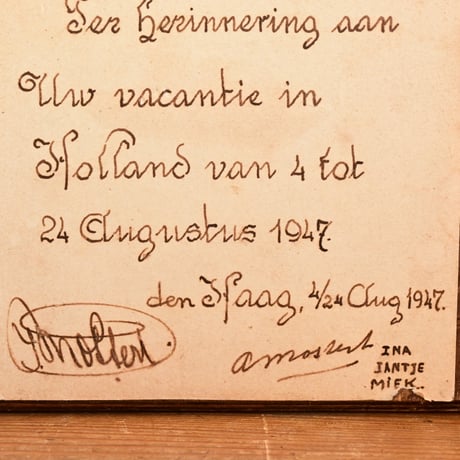 Ter Herinnering aan
Uw vacantie in
Holland van 4 tot
24 Augustus 1947.
den Haag, 4/24 Aug 1947.
amostert
INA
JANTJE
MIEK..